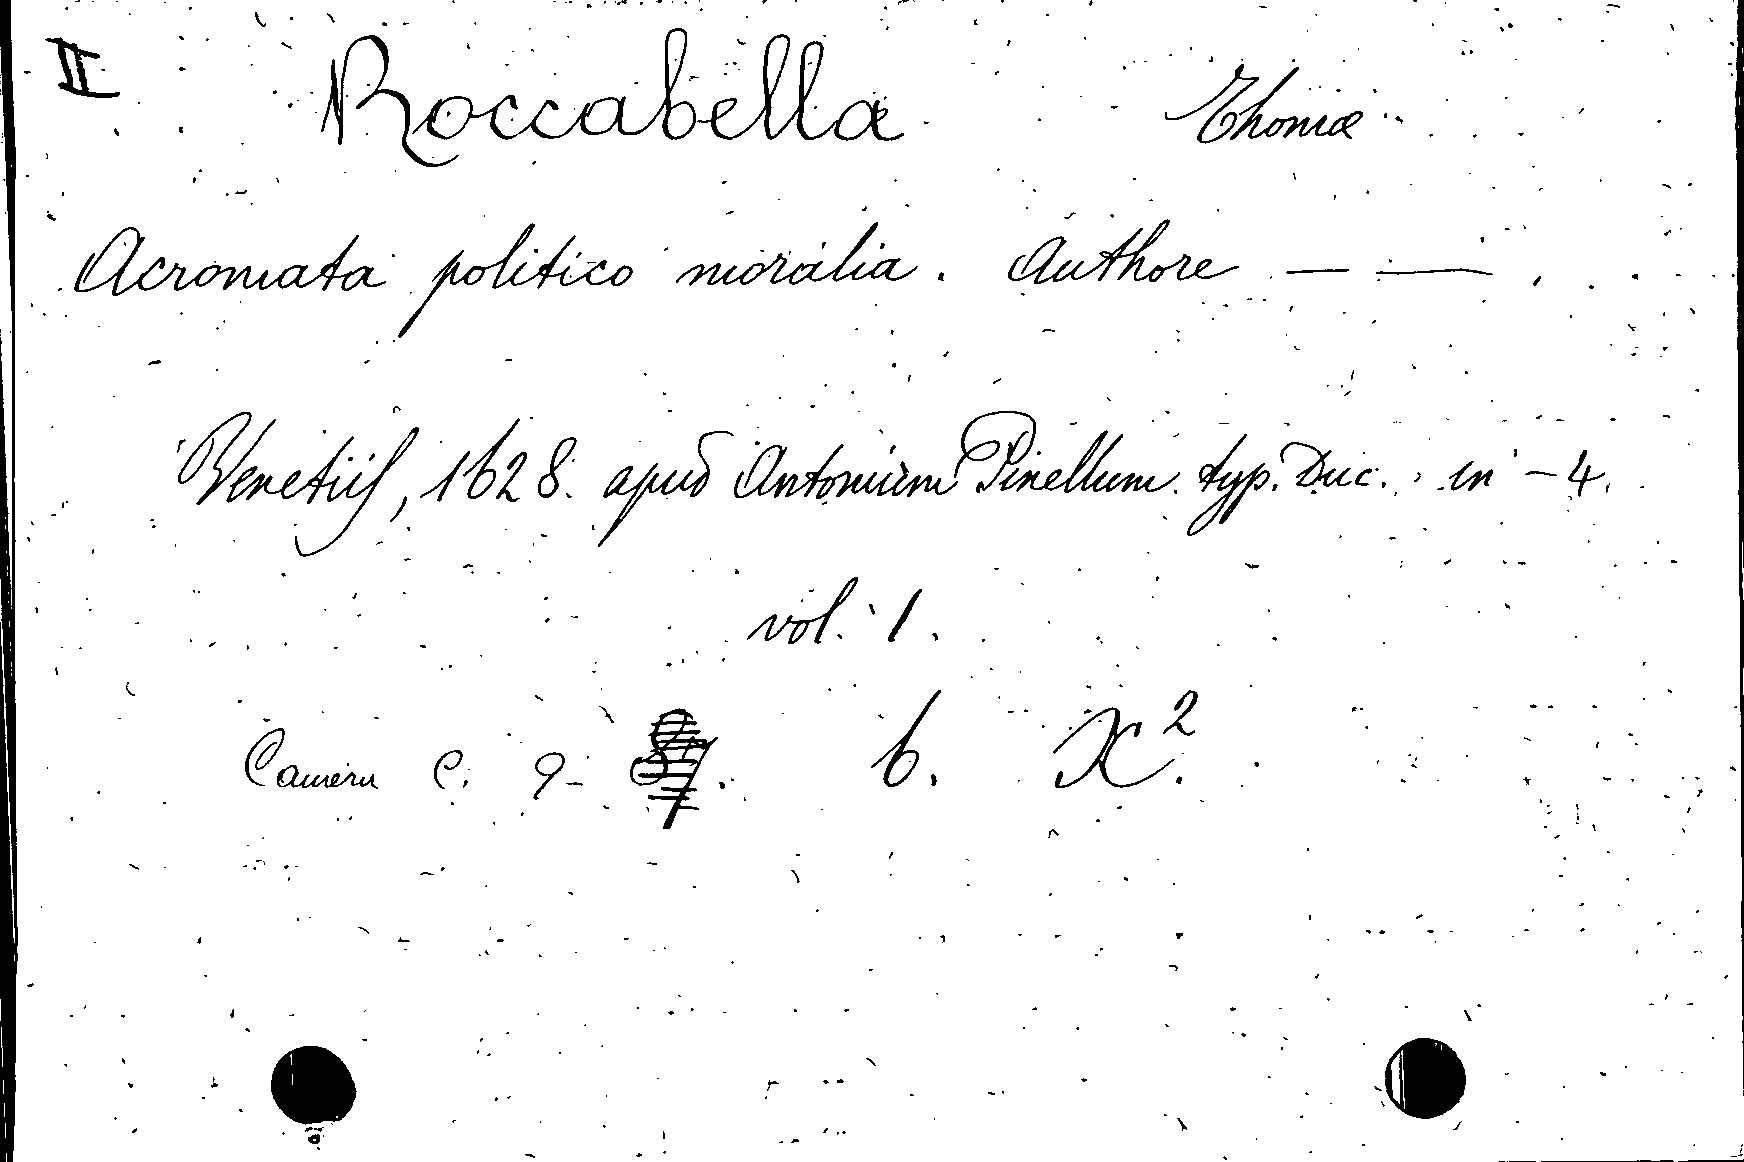 II Roccabella Thomæ
Acromata politico moralia. Authore — — .
Venetiis, 1628. apud Antonium Pinellum. typ. Duc. in-4.
vol. 1.
Camera C. 9- 87. 6. X².